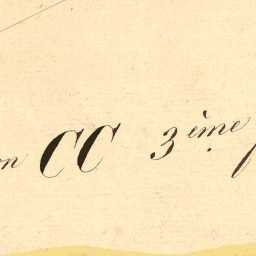 on CC 3ème